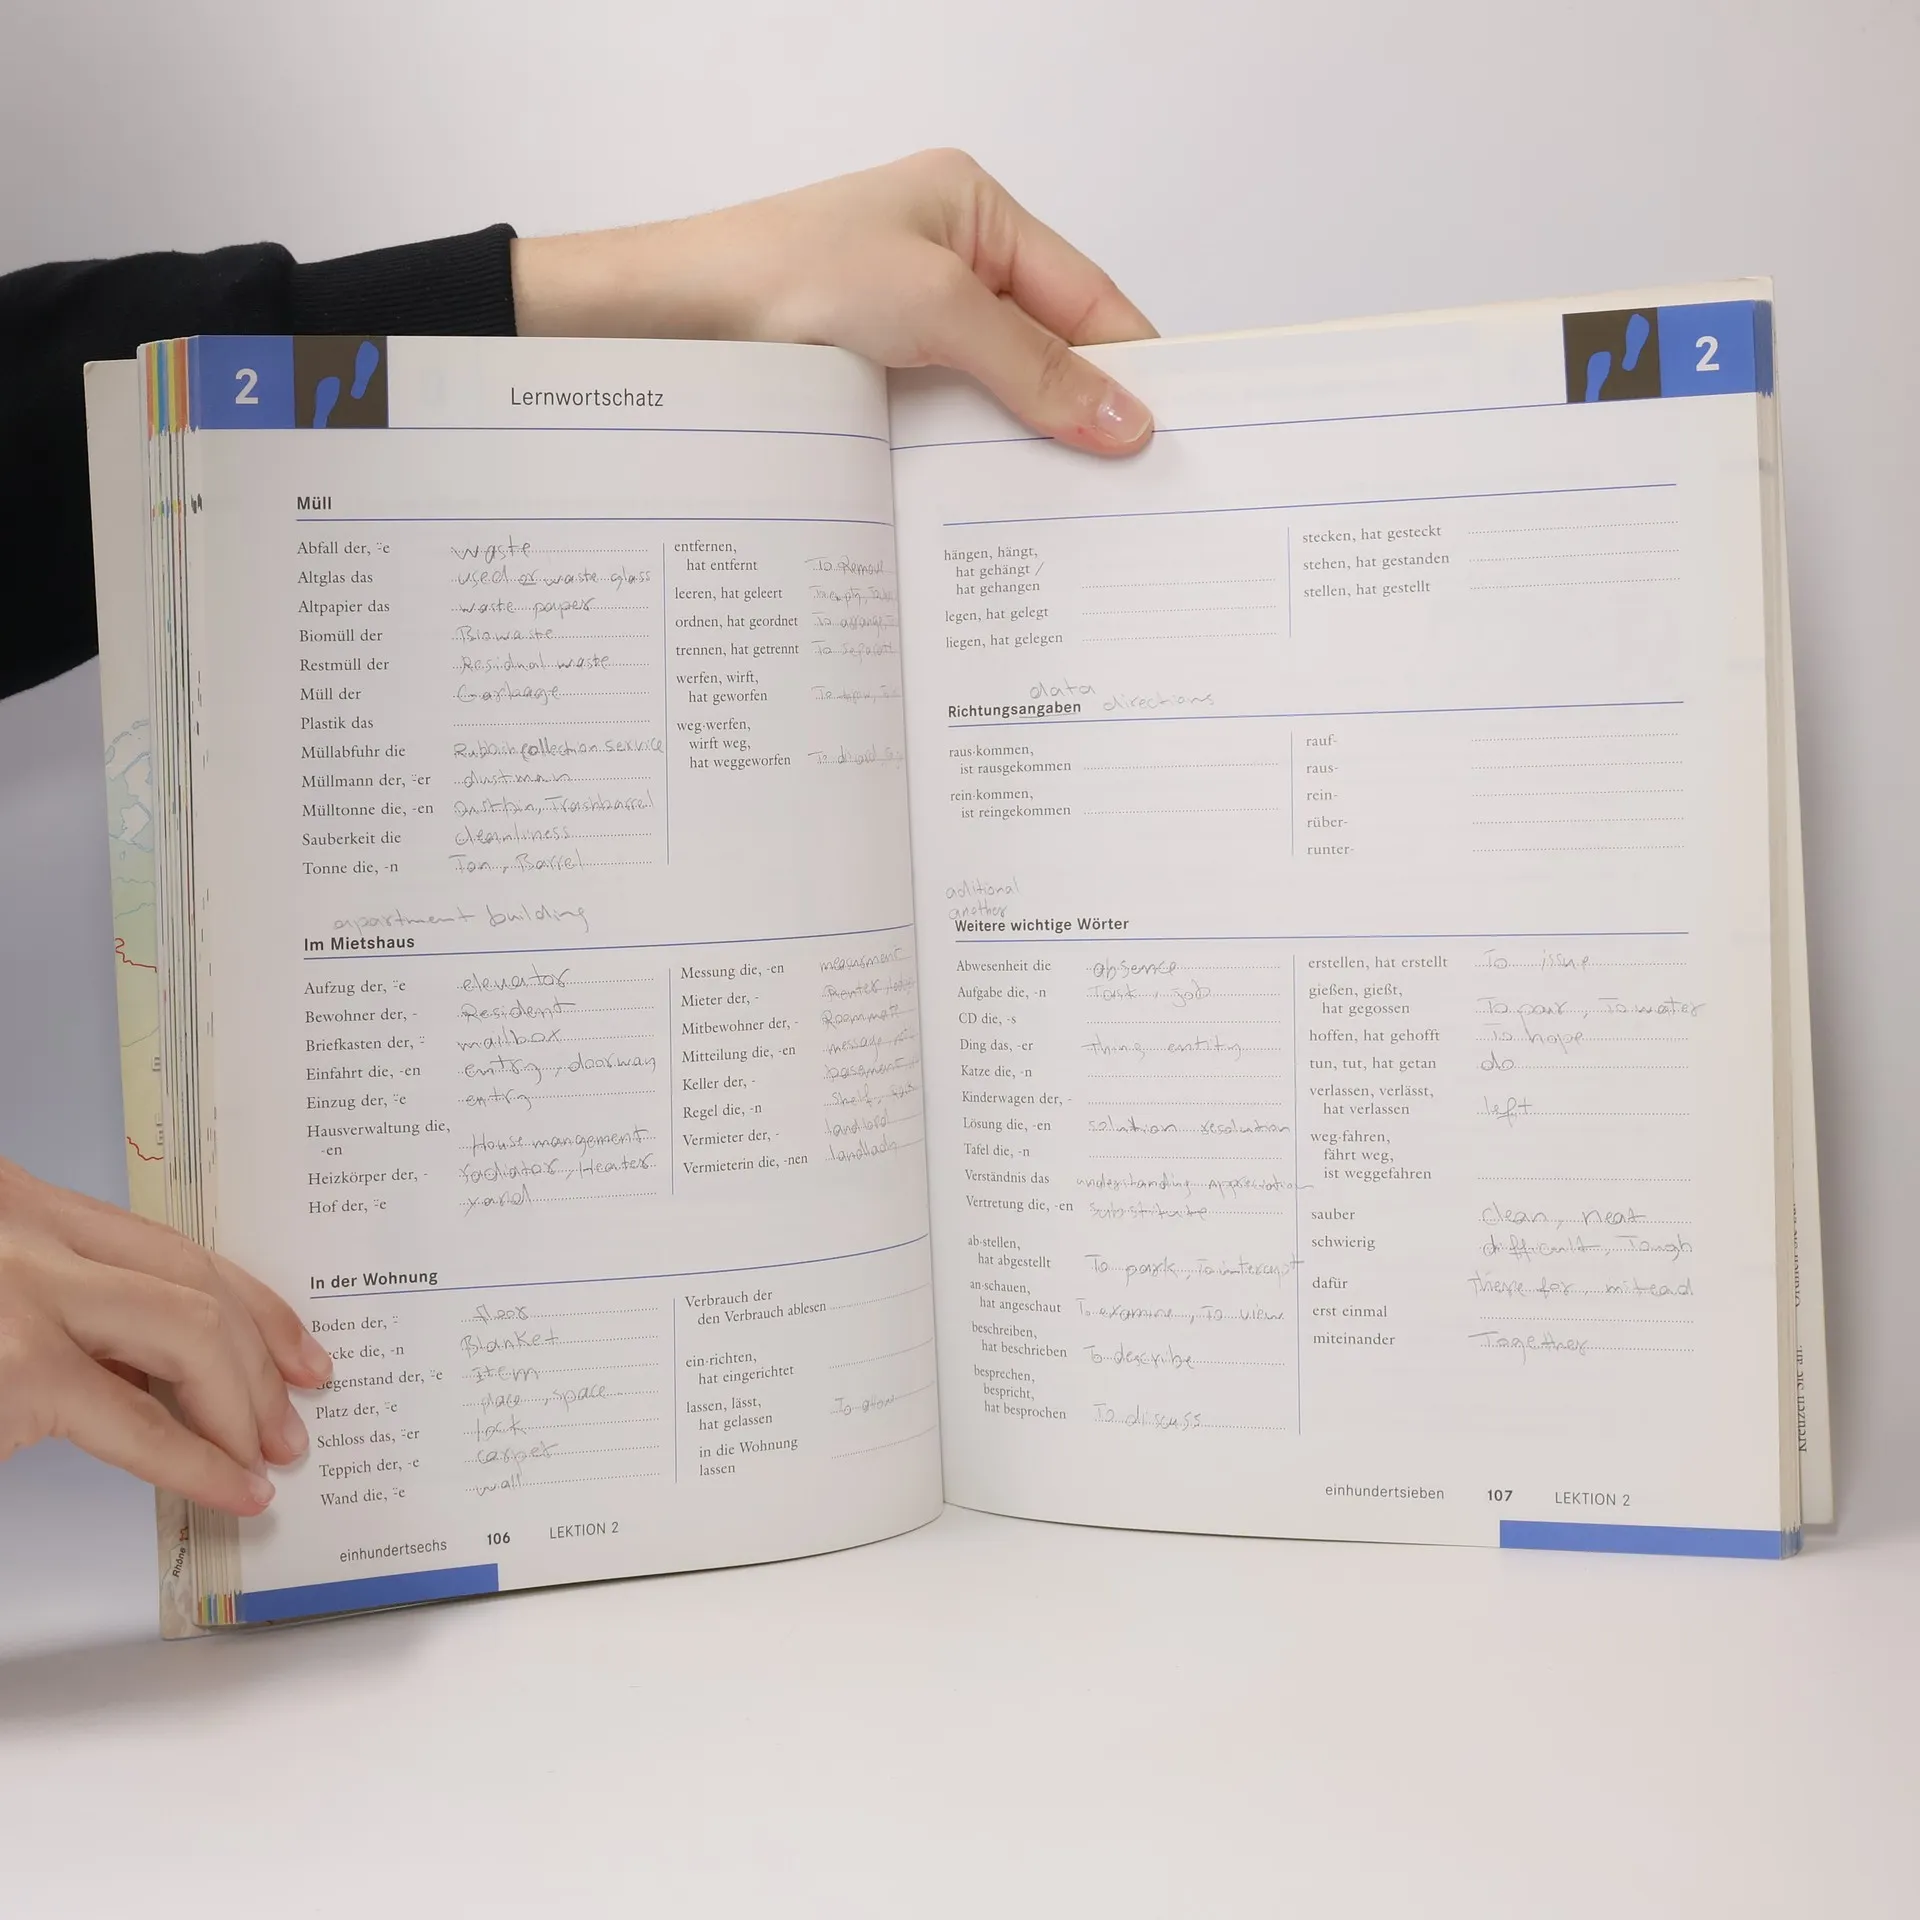 2
Lernwortschatz
Müll
Abfall der, ⸚e waste
Altglas das used or waste glass
Altpapier das waste paper
Biomüll der Biowaste
Restmüll der Residual waste
Müll der Garbage
Plastik das
Müllabfuhr die Rubbish collection service
Müllmann der, ⸚er dustman
Mülltonne die, -en dustbin, Trashbarrel
Sauberkeit die cleanliness
Tonne die, -n Ton, Barrel
entfernen,
hat entfernt To Remove
leeren, hat geleert To empty,
ordnen, hat geordnet To arrange,
trennen, hat getrennt To separate
werfen, wirft,
hat geworfen To
weg·werfen,
wirft weg,
hat weggeworfen To
apartment building
Im Mietshaus
Aufzug der, ⸚e elevator
Bewohner der, - Resident
Briefkasten der, ⸚ mailbox
Einfahrt die, -en entry, doorway
Einzug der, ⸚e entry
Hausverwaltung die,
-en House mangement
Heizkörper der, - radiator, Heater
Hof der, ⸚e yard
Messung die, -en
Mieter der, - Renter
Mitbewohner der, - Roommate
Mitteilung die, -en message
Keller der, - basement
Regel die, -n Shelf,
Vermieter der, - landlord
Vermieterin die, -nen landlady
In der Wohnung
Boden der, ⸚ floor
ecke die, -n Blanket
Gegenstand der, ⸚e Item
Platz der, ⸚e place, space
Schloss das, ⸚er lock
Teppich der, -e carpet
Wand die, ⸚e wall
Verbrauch der
den Verbrauch ablesen
ein·richten,
hat eingerichtet
lassen, lässt,
hat gelassen To
in die Wohnung
lassen
einhundertsechs 106 LEKTION 2
Rhône
2
hängen, hängt,
hat gehängt /
hat gehangen
legen, hat gelegt
liegen, hat gelegen
stecken, hat gesteckt
stehen, hat gestanden
stellen, hat gestellt
data
Richtungsangaben directions
raus·kommen,
ist rausgekommen
rein·kommen,
ist reingekommen
rauf-
raus-
rein-
rüber-
runter-
aditional
another
Weitere wichtige Wörter
Abwesenheit die absence
Aufgabe die, -n Task, job
CD die, -s
Ding das, -er thing entity
Katze die, -n
Kinderwagen der, -
Lösung die, -en solution resolution
Tafel die, -n
Verständnis das understanding Appreciation
Vertretung die, -en substitute
ab·stellen,
hat abgestellt To park, To intercept
an·schauen,
hat angeschaut To examine, To view
beschreiben,
hat beschrieben To describe
besprechen,
bespricht,
hat besprochen To discuss
erstellen, hat erstellt To issue
gießen, gießt,
hat gegossen To pour, To water
hoffen, hat gehofft To hope
tun, tut, hat getan do
verlassen, verlässt,
hat verlassen left
weg·fahren,
fährt weg,
ist weggefahren
sauber clean, neat
schwierig difficult, Tough
dafür there for,
erst einmal
miteinander Together
einhundertsieben 107 LEKTION 2
Kreuzen Sie an.